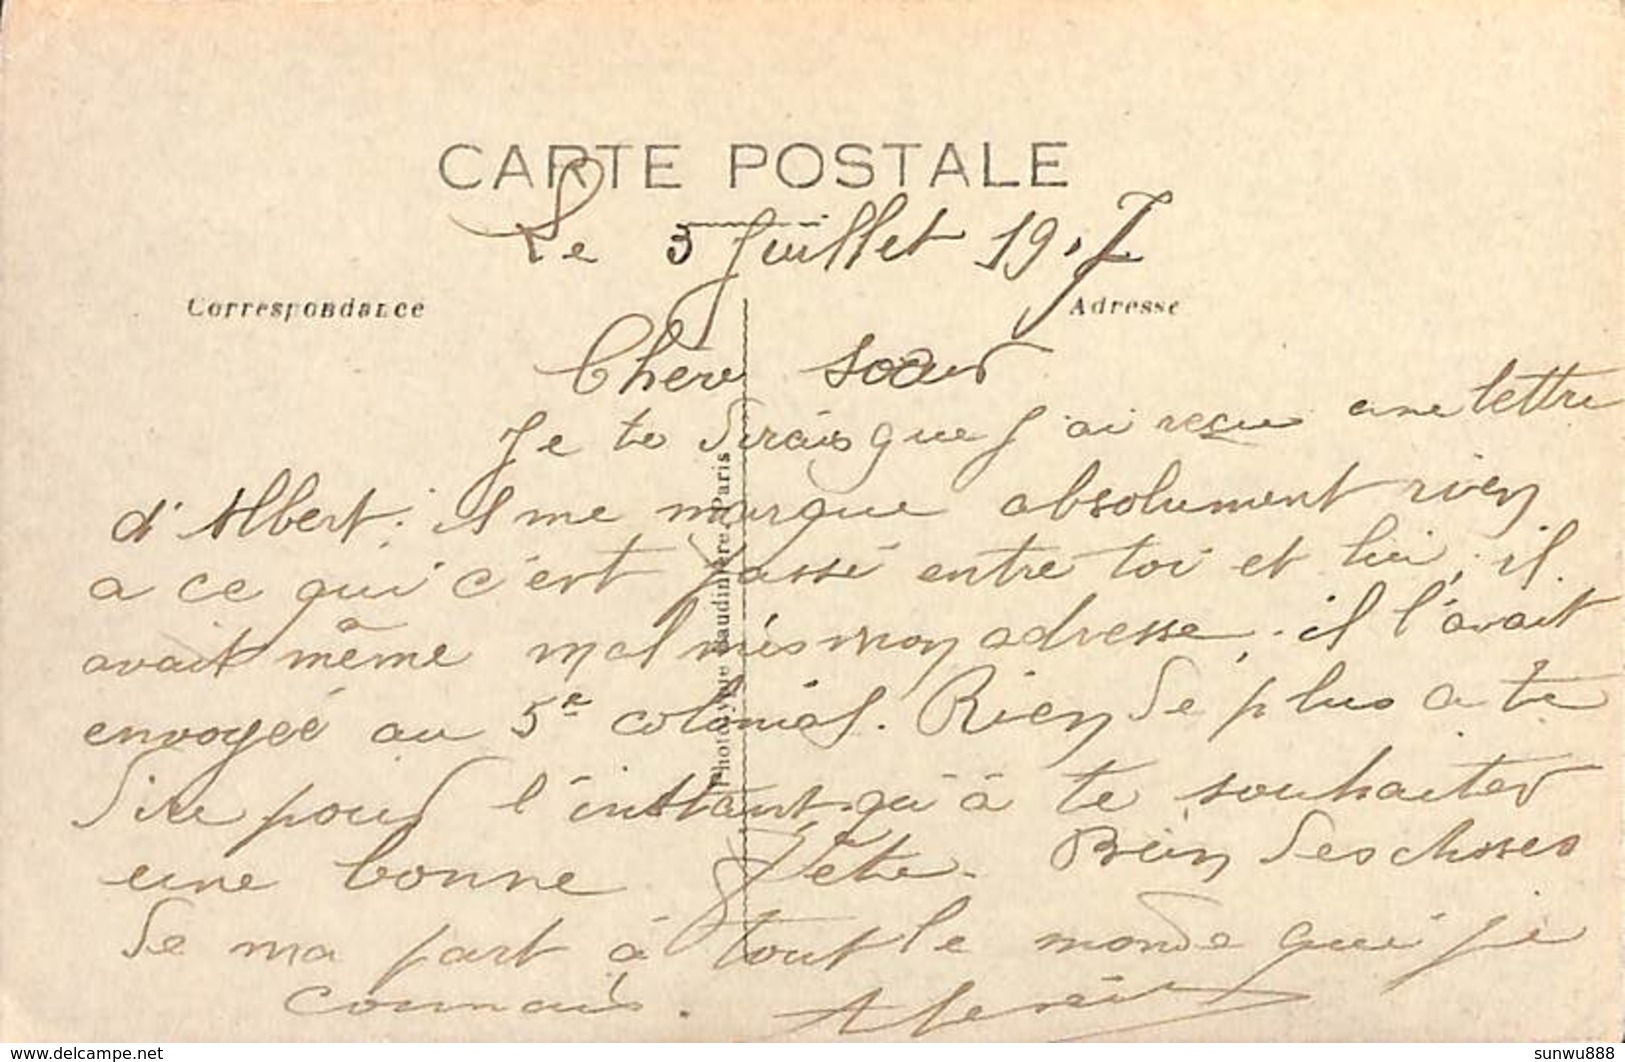 CARTE POSTALE
Le 5 Juillet 1917
Correspondance
Adresse
Chere soeur
Je te dirais que j'ai reçu une lettre
d'Albert. il me marque absolument rien
a ce qui c'est passé entre toi et lui, il
avait même mal mis mon adresse, il l'avait
envoyée au 5e colonial. Rien de plus a te
dire pour l'instant qu'à te souhaiter
une bonne fête. Bien des choses
de ma part à tout le monde que je
connais.
Phototypie Baudinière Paris
delcampe.net
sunwu888